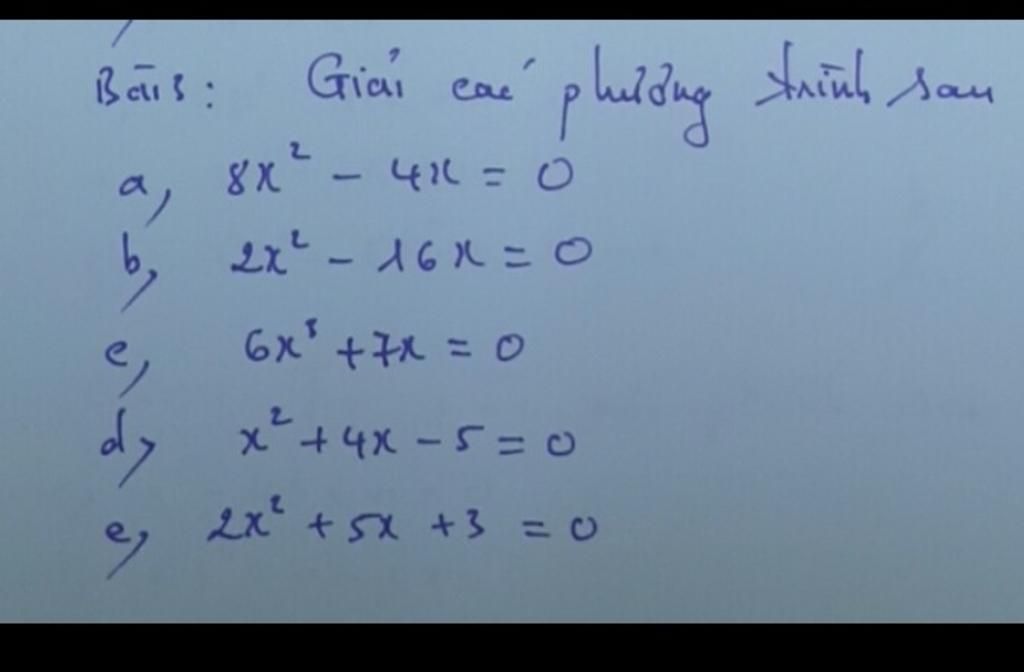 Bài 3: Giải các phương trình sau
a, 8x² - 4x = 0
b, 2x² - 16x = 0
c, 6x³ + 7x = 0
d, x² + 4x - 5 = 0
e, 2x² + 5x + 3 = 0